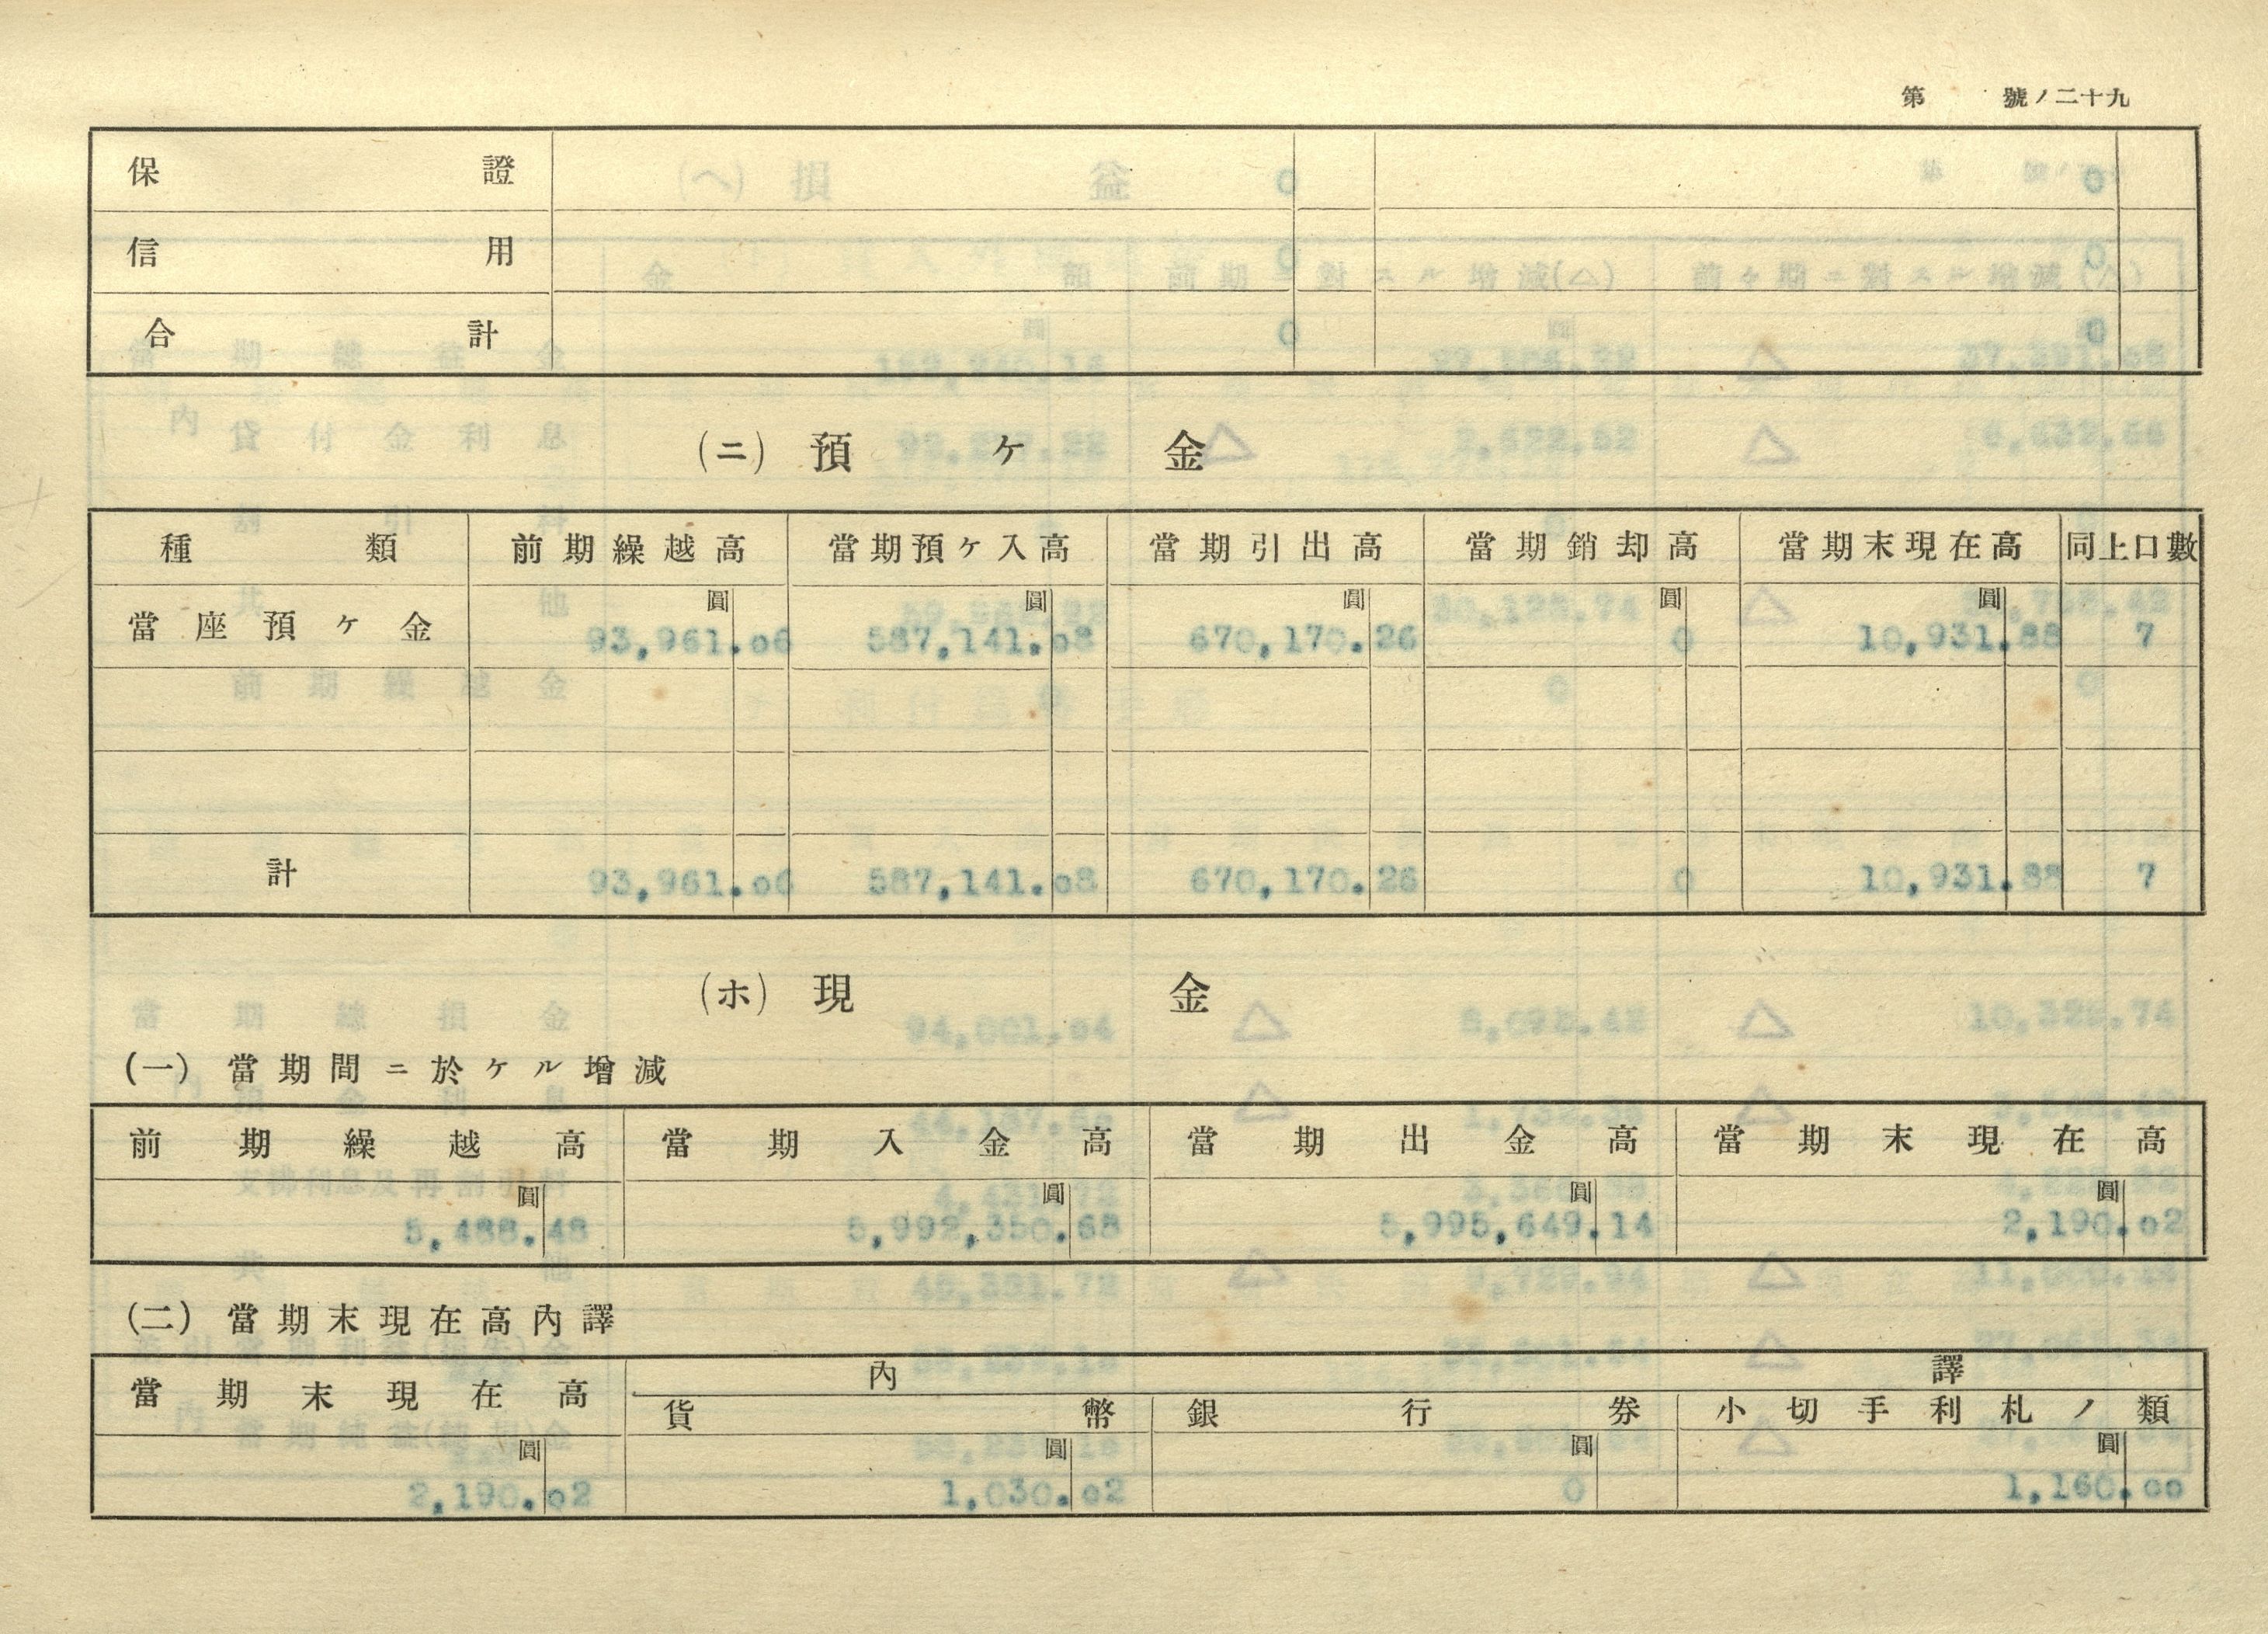 第 號ノ二十九
保證 0 0
信用 0 0
合計 0 0
(ニ) 預ケ金
種類 前期繰越高 當期預ケ入高 當期引出高 當期銷却高 當期末現在高 同上口數
圓 圓 圓 圓 圓
當座預ケ金 93,961.06 587,141.08 670,170.26 0 10,931.88 7
計 93,961.06 587,141.08 670,170.26 0 10,931.88 7
(ホ) 現金
(一) 當期間ニ於ケル增減
前期繰越高 當期入金高 當期出金高 當期末現在高
圓 圓 圓 圓
5,488.48 5,992,350.68 5,995,649.14 2,190.02
(二) 當期末現在高內譯
當期末現在高 內譯
貨幣 銀行券 小切手利札ノ類
圓 圓 圓 圓
2,190.02 1,030.02 0 1,160.00